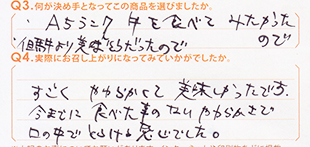 Q3.何が決め手となってこの商品を選びましたか。
・A5ランク牛を食べてみたかったので
・但馬より美味そうだったので
Q4.実際にお召し上がりになってみていかがでしたか。
すごくやわらかくて美味しかったです。
今までに食べた事のないやわらかさで
口の中でとろける感じでした。